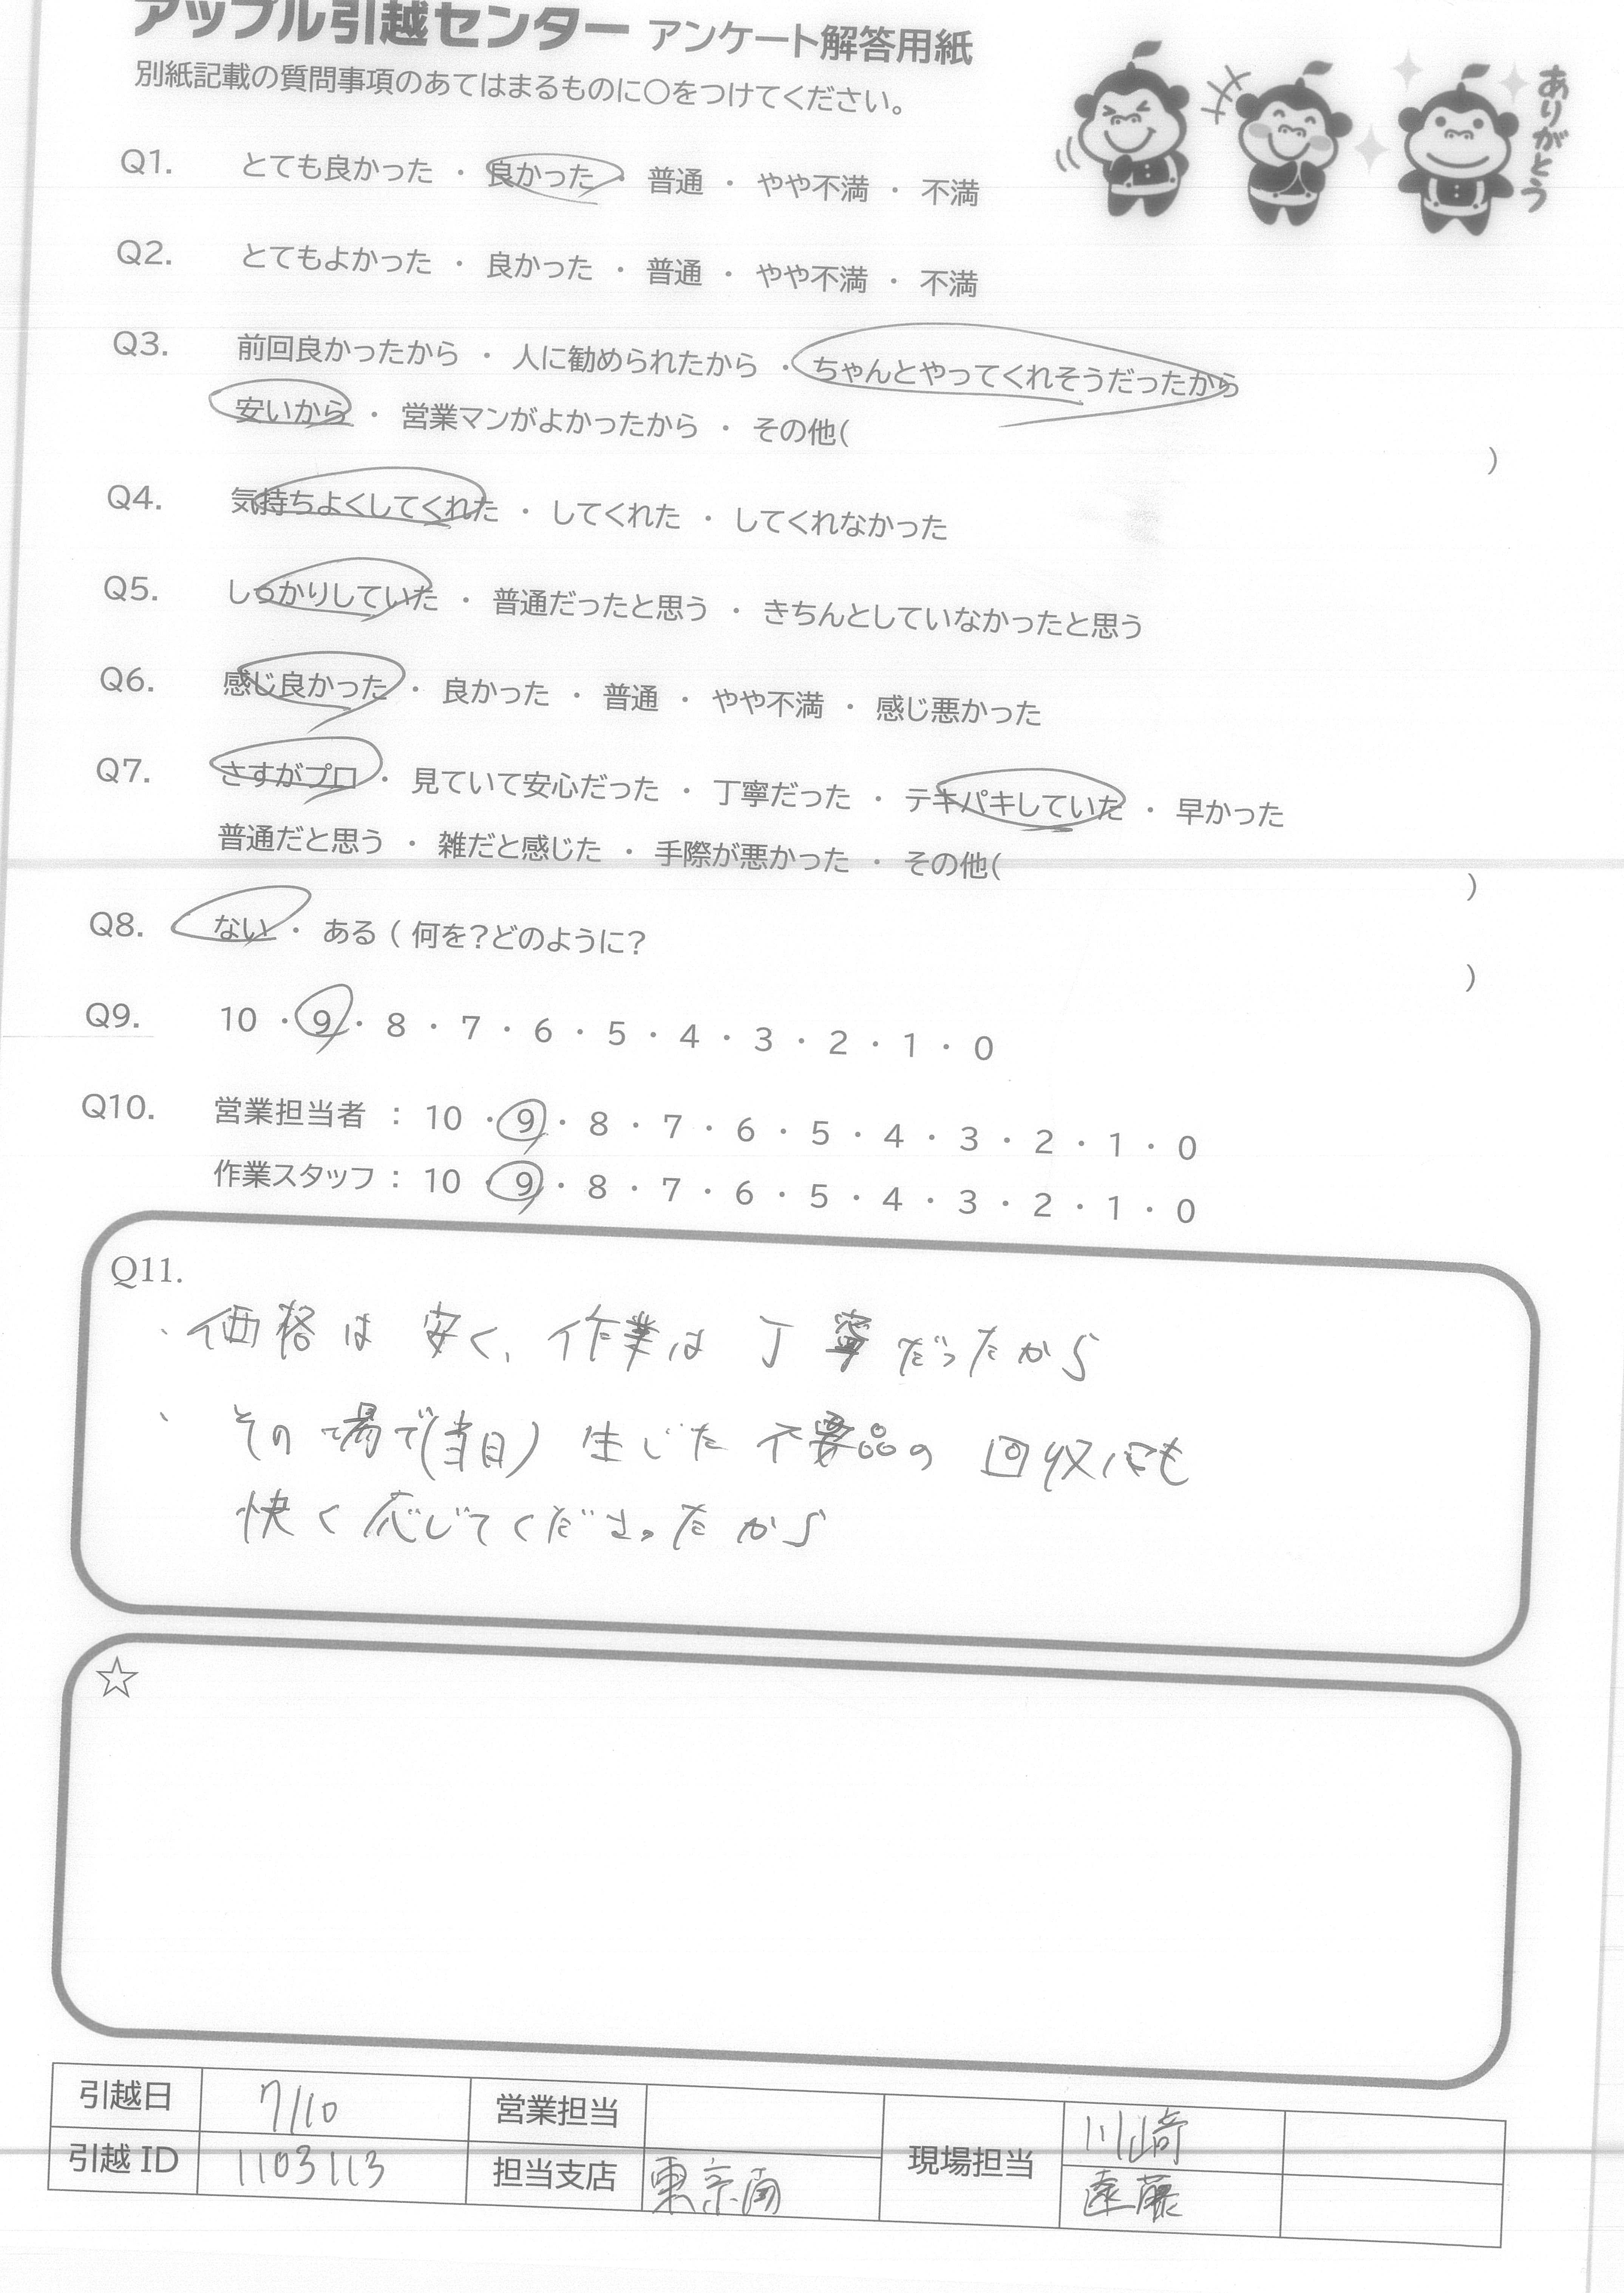 アップル引越センター アンケート解答用紙
別紙記載の質問事項のあてはまるものに〇をつけてください。
ありがとう
Q1. とても良かった ・ 良かった ・ 普通 ・ やや不満 ・ 不満
Q2. とてもよかった ・ 良かった ・ 普通 ・ やや不満 ・ 不満
Q3. 前回良かったから ・ 人に勧められたから ・ ちゃんとやってくれそうだったから
安いから ・ 営業マンがよかったから ・ その他( )
Q4. 気持ちよくしてくれた ・ してくれた ・ してくれなかった
Q5. しっかりしていた ・ 普通だったと思う ・ きちんとしていなかったと思う
Q6. 感じ良かった ・ 良かった ・ 普通 ・ やや不満 ・ 感じ悪かった
Q7. さすがプロ ・ 見ていて安心だった ・ 丁寧だった ・ テキパキしていた ・ 早かった
普通だと思う ・ 雑だと感じた ・ 手際が悪かった ・ その他( )
Q8. ない ・ ある ( 何を?どのように? )
Q9. 10 ・ 9 ・ 8 ・ 7 ・ 6 ・ 5 ・ 4 ・ 3 ・ 2 ・ 1 ・ 0
Q10. 営業担当者 : 10 ・ 9 ・ 8 ・ 7 ・ 6 ・ 5 ・ 4 ・ 3 ・ 2 ・ 1 ・ 0
作業スタッフ : 10 ・ 9 ・ 8 ・ 7 ・ 6 ・ 5 ・ 4 ・ 3 ・ 2 ・ 1 ・ 0
Q11.
・価格は安く、作業は丁寧だったから
・その場で(当日)生じた不要品の回収にも
快く応じてくださったから
☆
引越日 7/10 営業担当 現場担当 川崎
引越 ID 1103113 担当支店 東京南 遠藤